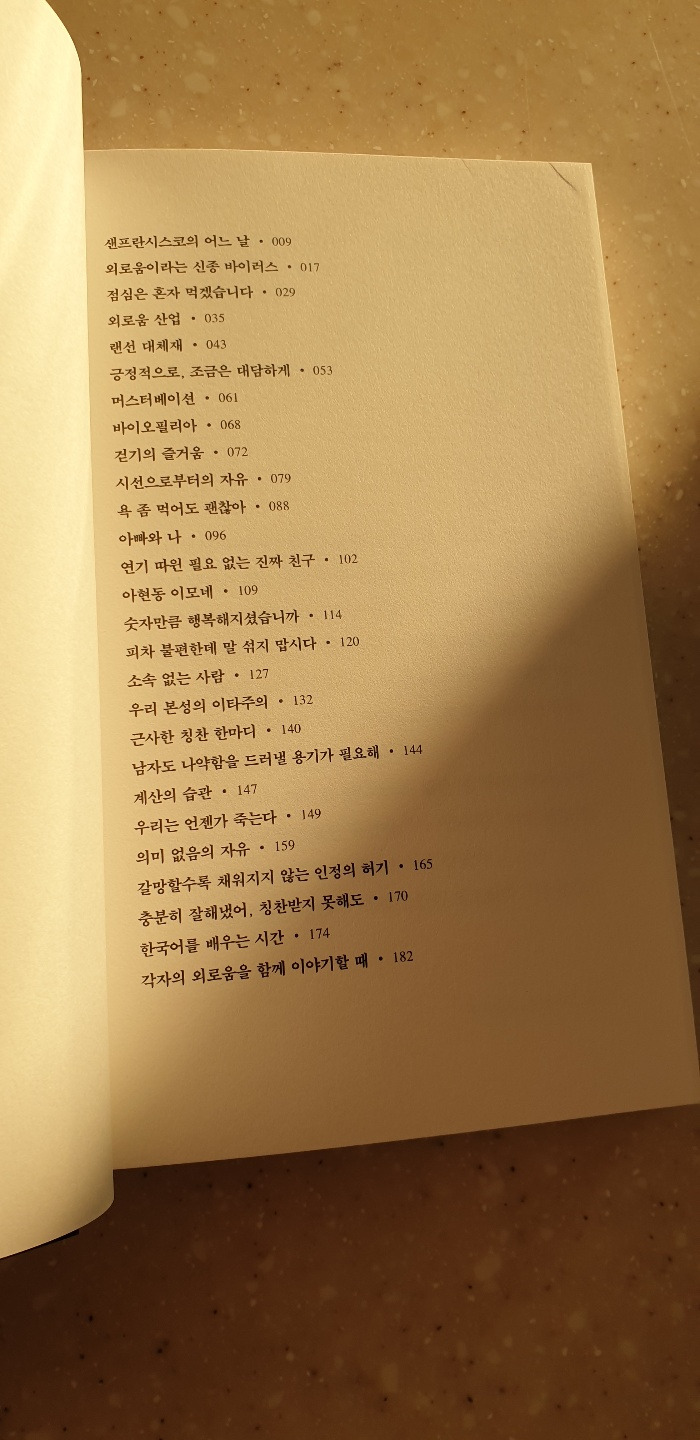 샌프란시스코의 어느 날 • 009
외로움이라는 신종 바이러스 • 017
점심은 혼자 먹겠습니다 • 029
외로움 산업 • 035
랜선 대체재 • 043
긍정적으로, 조금은 대담하게 • 053
머스터베이션 • 061
바이오필리아 • 068
걷기의 즐거움 • 072
시선으로부터의 자유 • 079
욕 좀 먹어도 괜찮아 • 088
아빠와 나 • 096
연기 따윈 필요 없는 진짜 친구 • 102
아현동 이모네 • 109
숫자만큼 행복해지셨습니까 • 114
피차 불편한데 말 섞지 맙시다 • 120
소속 없는 사람 • 127
우리 본성의 이타주의 • 132
근사한 칭찬 한마디 • 140
남자도 나약함을 드러낼 용기가 필요해 • 144
계산의 습관 • 147
우리는 언젠가 죽는다 • 149
의미 없음의 자유 • 159
갈망할수록 채워지지 않는 인정의 허기 • 165
충분히 잘해냈어, 칭찬받지 못해도 • 170
한국어를 배우는 시간 • 174
각자의 외로움을 함께 이야기할 때 • 182